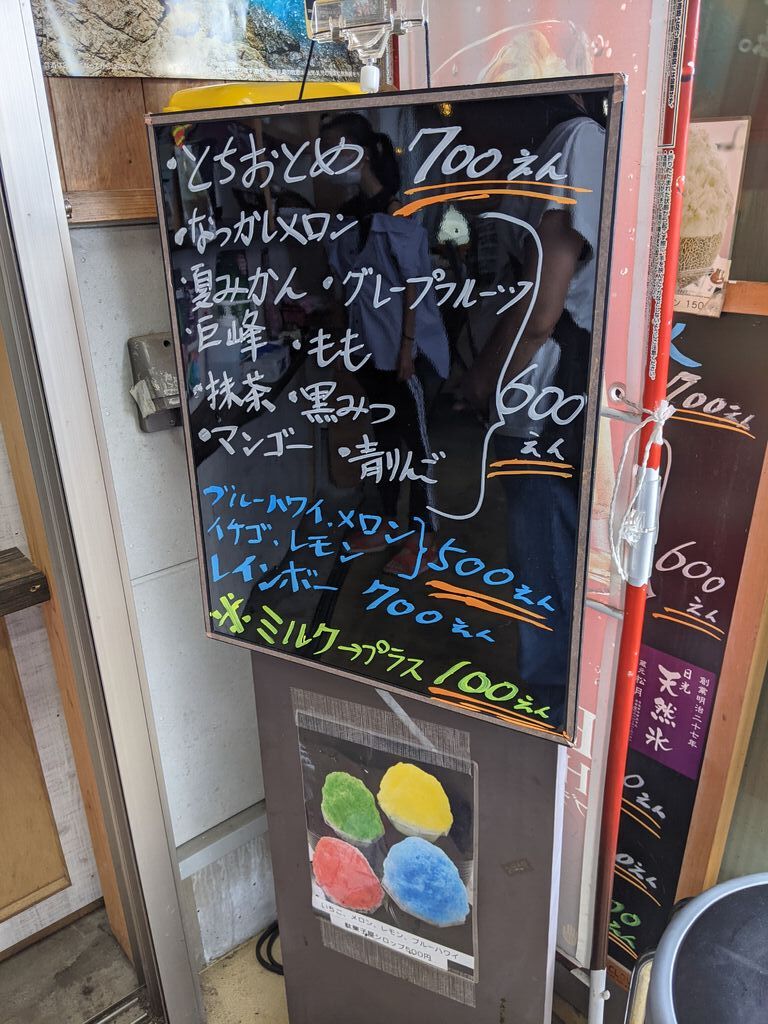 ・とちおとめ 700えん
・なつかしメロン
・夏みかん ・グレープフルーツ
・巨峰 ・もも
・抹茶 ・黒みつ
・マンゴー ・青りんご
600
えん
ブルーハワイ、メロン
イチゴ、レモン
500えん
レインボー 700えん
※ミルク→プラス 100えん
いちご、メロン、レモン、ブルーハワイ
駄菓子屋シロップ500円
150
700えん
600
えん
創業明治二十七年
日光
天然氷
蔵元 松月
0えん
0えん
00
えん